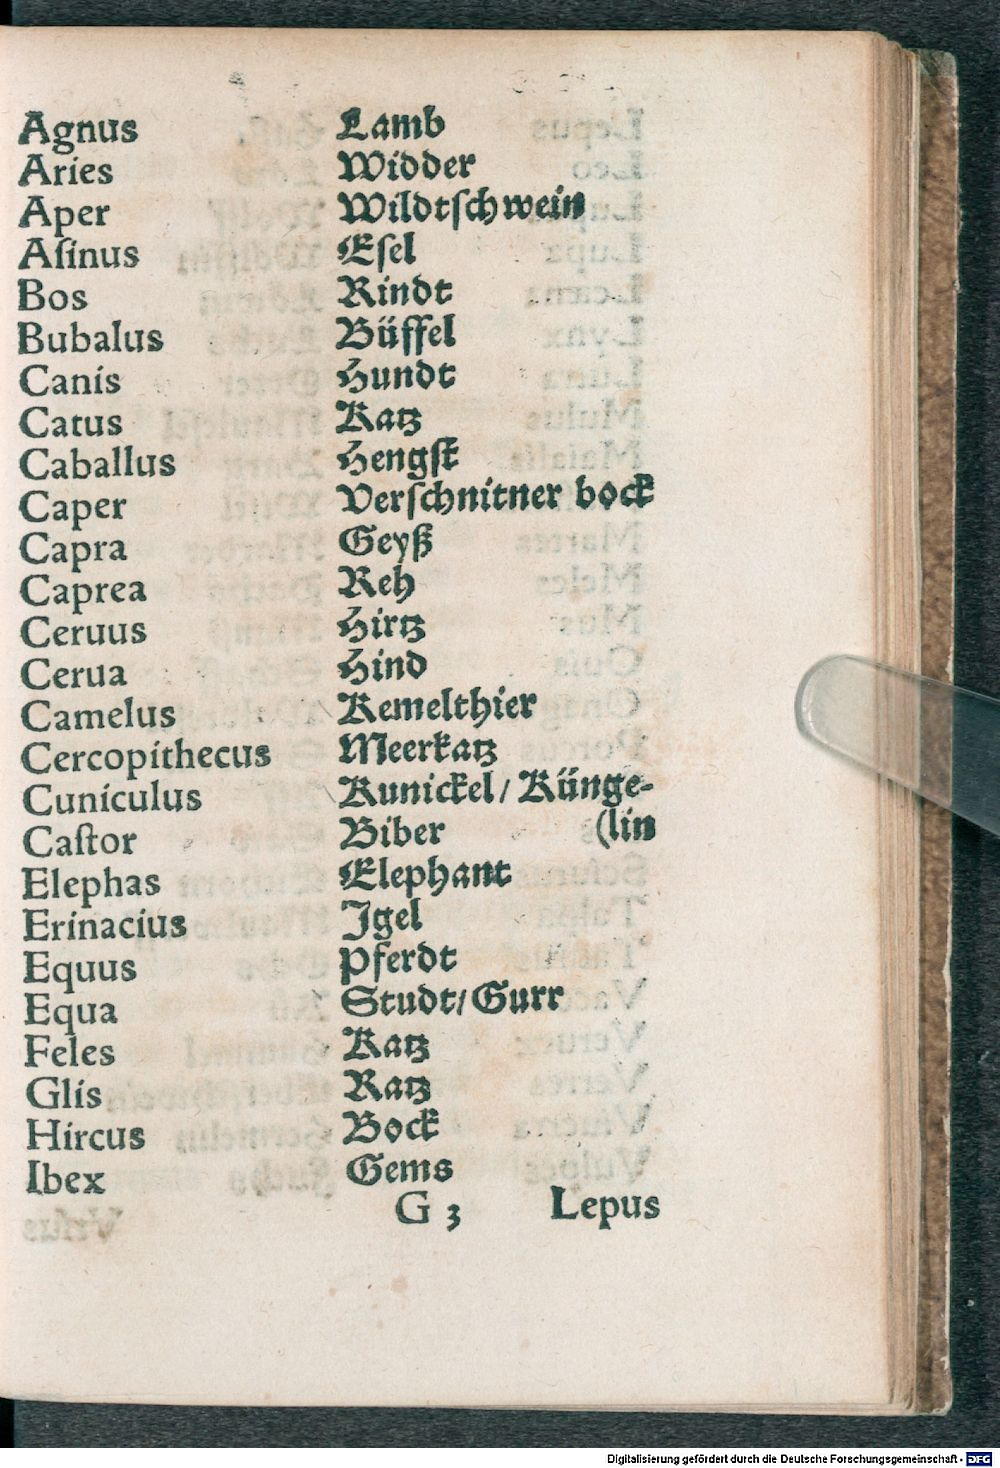 Agnus Lamb
Aries Widder
Aper Wildtſchwein
Aſinus Eſel
Bos Rindt
Bubalus Büffel
Canis Hundt
Catus Katz
Caballus Hengſt
Caper Verſchnitner bock
Capra Geyß
Caprea Reh
Ceruus Hirtz
Cerua Hind
Camelus Kemelthier
Cercopithecus Meerkatz
Cuniculus Kunickel/ Künge-
Caſtor Biber (lin
Elephas Elephant
Erinacius Igel
Equus Pferdt
Equa Studt/ Gurr
Feles Katz
Glis Ratz
Hircus Bock
Ibex Gems
G 3 Lepus
Digitalisierung gefördert durch die Deutsche Forschungsgemeinschaft - DFG